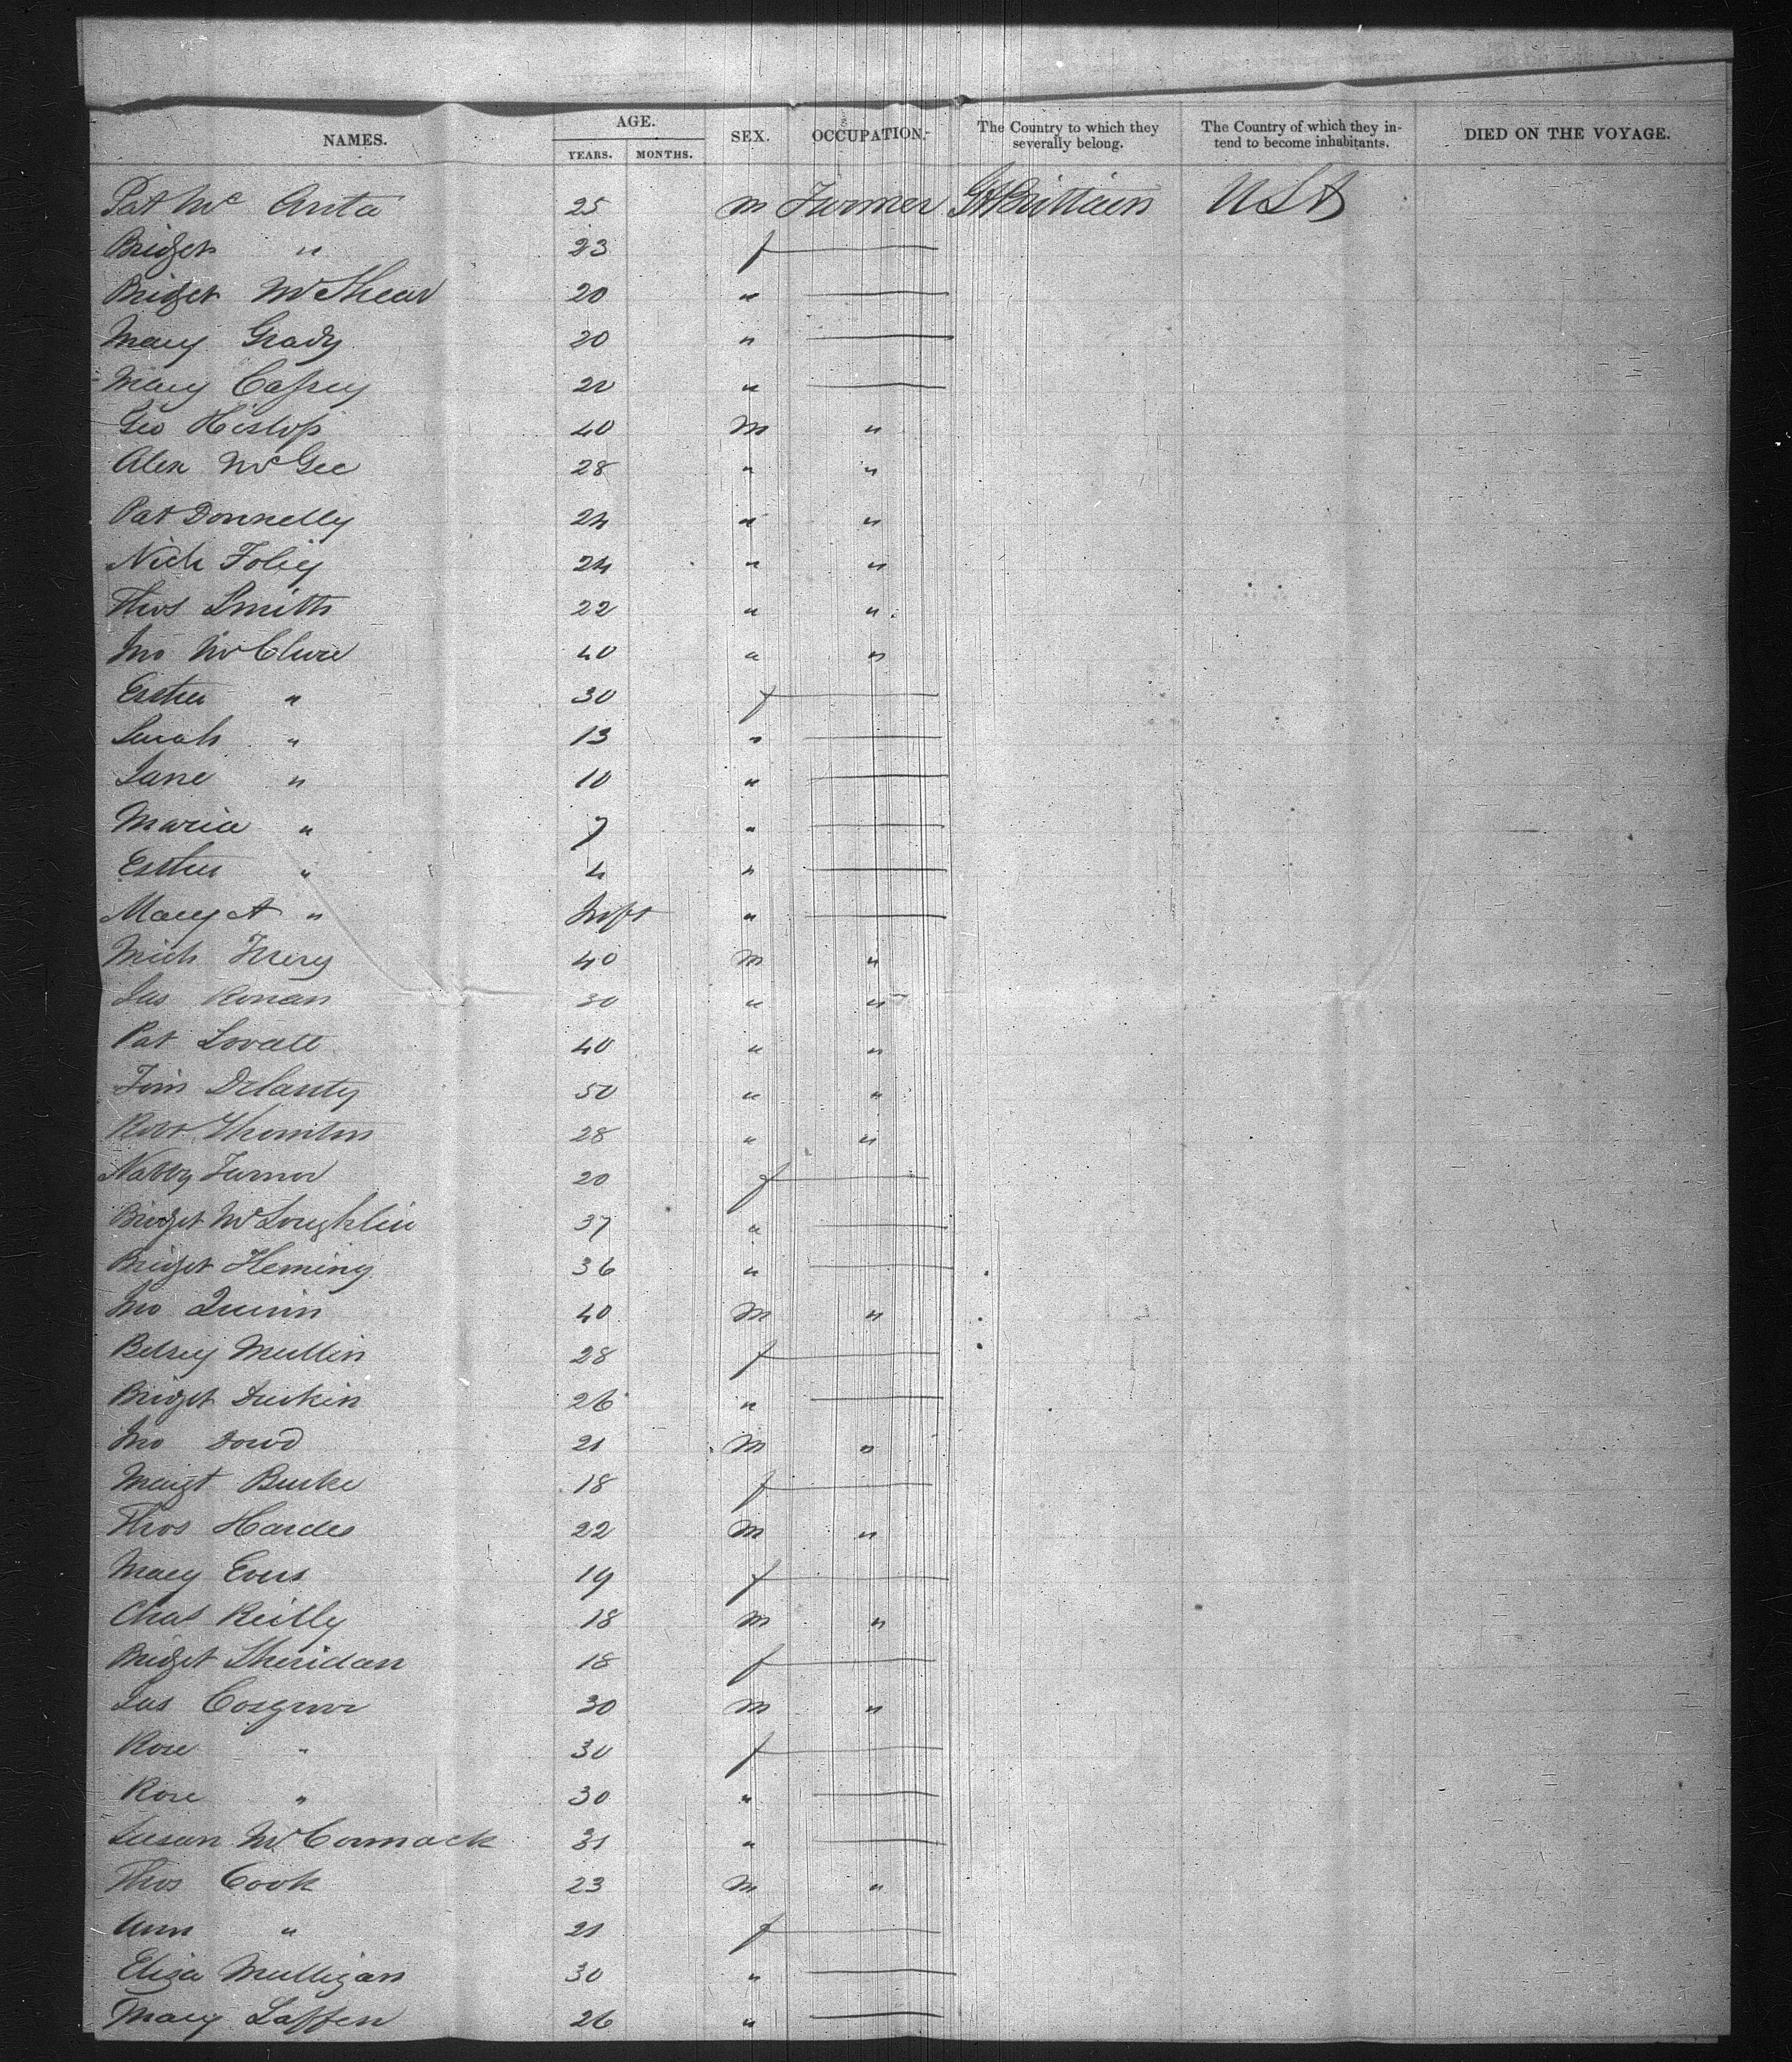 NAMES. AGE. SEX. OCCUPATION. The Country to which they severally belong. The Country of which they intend to become inhabitants. DIED ON THE VOYAGE.
YEARS. MONTHS.
Pat Mc Anta 25 m Farmer Gt Brittain USA
Bridget " 23 f
Bridget McShear 20 "
Mary Grady 20 "
Mary Cafrey 20 "
Geo Hislop 40 M " 
Alex McGee 28 " "
Pat Donnelly 24 " "
Nich Foliey 24 " "
Thos Smith 22 " "
Jno McClure 40 " "
Esther " 30 f
Sarah " 13 "
Jane " 10 "
Maria " 7 "
Esther " 4 "
Mary A " Inft "
Mich 40 M "
Jas Ronan 30 " "
Pat 40 " "
Tim Delanty 50 " "
Robt Thornton 28 " "
Nabby Turnor 20 f
Bridget McLoughlin 37 "
Bridget Fleming 36 "
Jno Quinn 40 M "
Betsey Mullin 28 f
Bridget Durkin 26 "
Jno Dowd 21 M "
Margt Burke 18 f
Thos 22 M "
Mary 19 f
Chas Reilly 18 M "
Bridget Sheridan 18 f
Jas Cosgrove 30 M "
Rose " 30 f
Rose " 30 "
Susan McCormack 31 "
Thos Cook 23 M "
Ann " 21 f
Eliza Mulligan 30 "
Mary Laffen 26 "